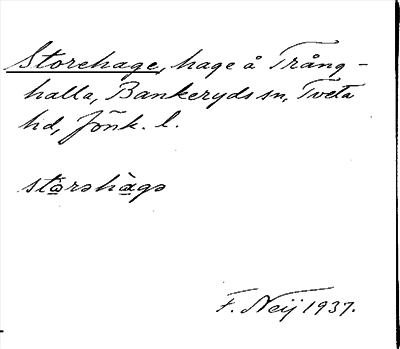 Storehage, hage å Trång-
halla, Bankeryds sn, Tveta
hd, Jönk. l.
stōrəhàgə
F. Neij 1937.